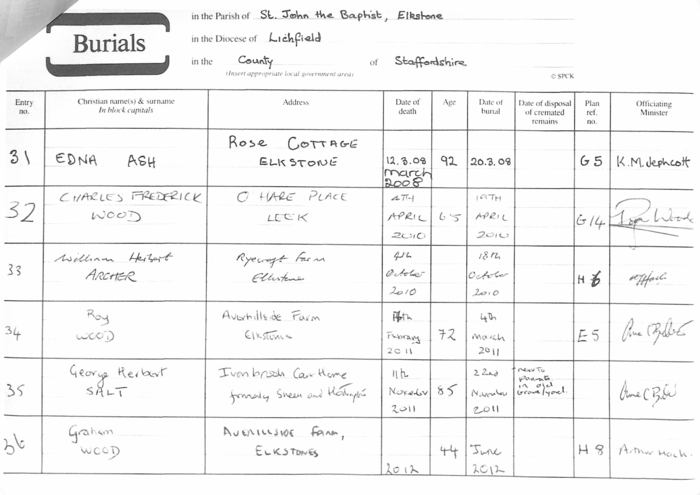 Burials
in the Parish of St. John the Baptist, Elkstone
in the Diocese of Lichfield
in the County of Staffordshire
(Insert appropriate local government area)
© SPCK
Entry no. Christian name(s) & surname In block capitals Address Date of death Age Date of burial Date of disposal of cremated remains Plan ref. no. Officiating Minister
31 EDNA ASH ROSE COTTAGE ELKSTONE 12.3.08 march 2008 92 20.3.08 G5 K.M.Jephcott
32 CHARLES FREDERICK WOOD 0 HARE PLACE LEEK 4TH APRIL 2010 65 19TH APRIL 2010 G14
33 William Herbert ARCHER Ryecroft Farm Elkstone 4th October 2010 18th October 2010 H
34 Roy WOOD Averhillside Farm ELKSTONES February 2011 72 4th March 2011 E5
35 George Herbert SALT Ivonbrook Care Home formerly Sheen and 11th November 2011 85 22nd November 2011 next to parents in old graveyard.
36 Graham WOOD AVERHILLSIDE FARM, ELKSTONES 2012 44 June 2012 H8 Arthur